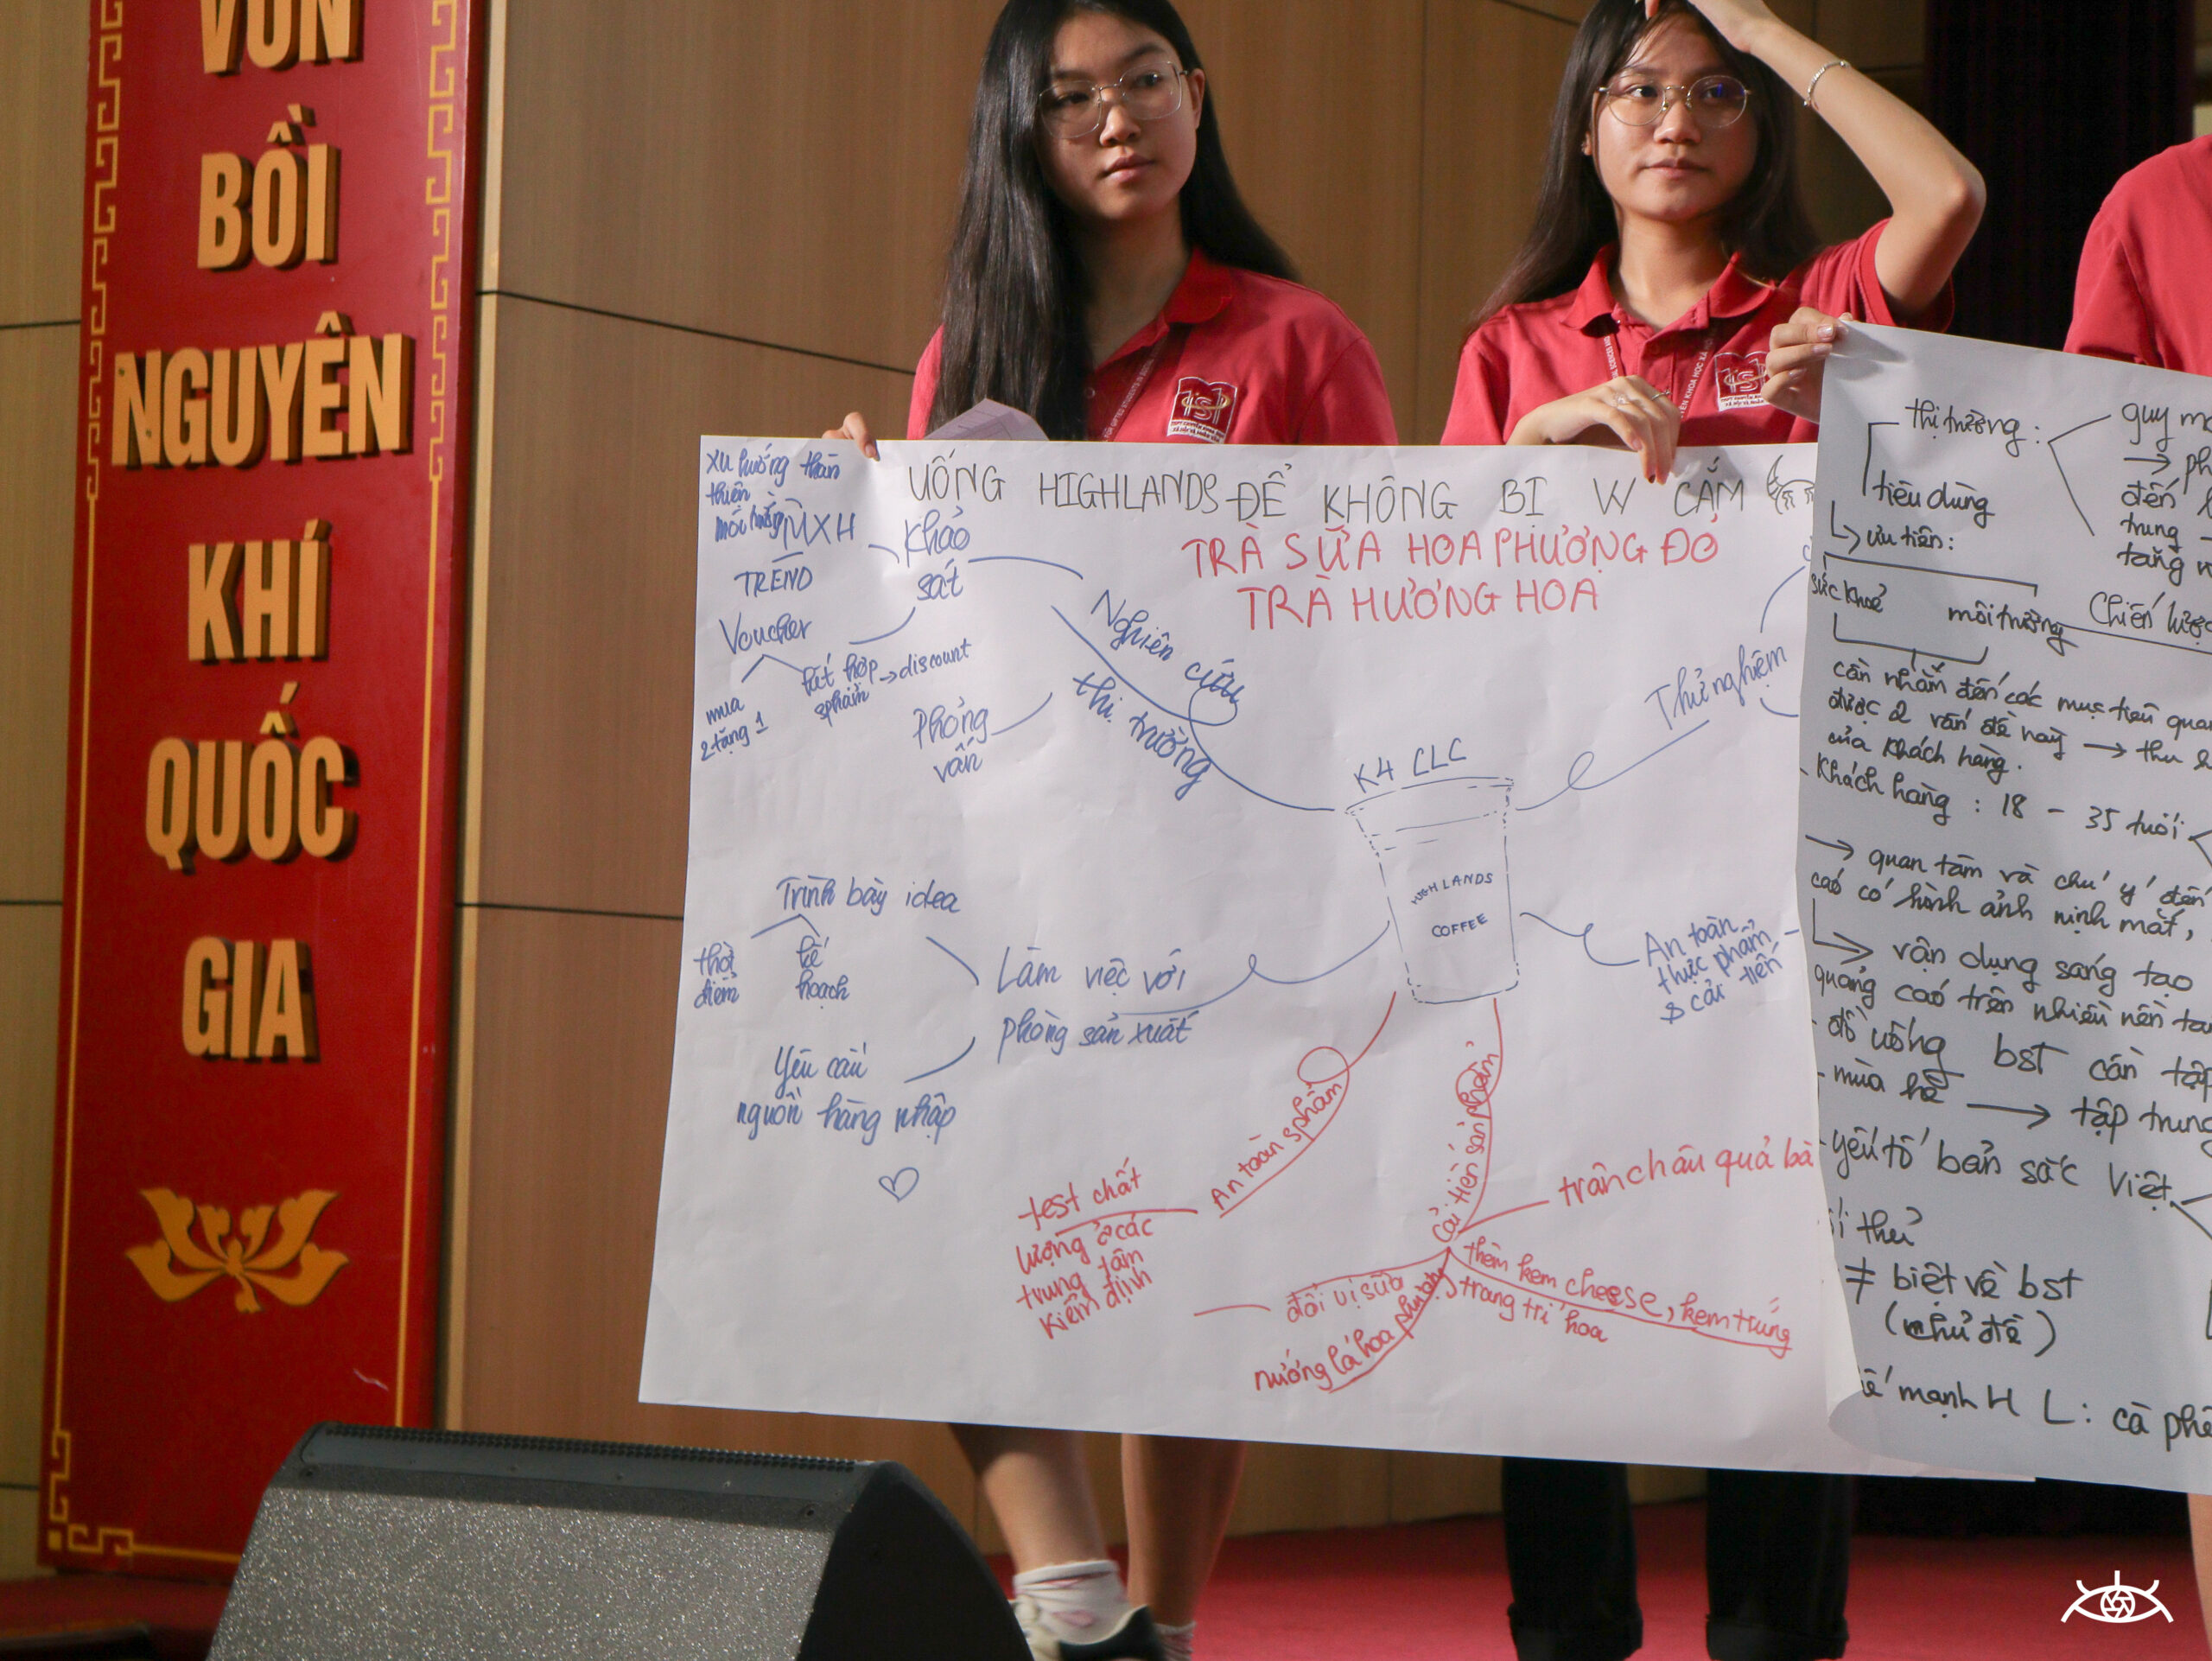 VUN
BỒI
NGUYÊN
KHÍ
QUỐC
GIA
UỐNG HIGHLANDS ĐỂ KHÔNG BỊ W CẮM
TRÀ SỮA HOA PHƯỢNG ĐỎ
TRÀ HƯƠNG HOA
xu hướng thân
thiện
môi trường
MXH
TREND
Khảo
sát
Voucher
mua
2 tặng 1
kết hợp
sphẩm → discount
Phỏng
vấn
Nghiên cứu
thị trường
Thử nghiệm
K4 CLC
HIGHLANDS
COFFEE
Trình bày idea
thời
điểm
kế
hoạch
Làm việc với
phòng sản xuất
Yêu cầu
nguồn hàng nhập
An toàn
thực phẩm
& cải tiến
An toàn sphẩm
test chất
lượng ở các
trung tâm
kiểm định
Cải tiến sản phẩm
trân châu quả bà
thêm kem cheese, kem trứng
trang trí hoa
đổi vị sữa
nướng lá hoa phượng
thị trường:
quy mô
→ ph
đến
trung
tăng
tiêu dùng
ưu tiên:
sức khoẻ
môi trường
Chiến lược
cần nhắm đến các mục tiêu qua
được 2 vấn đề này → thu h
của khách hàng.
Khách hàng: 18 - 35 tuổi
→ quan tâm và chú ý đến
cáo có hình ảnh nịnh mắt,
vận dụng sáng tạo
quảng cáo trên nhiều nền tả
đồ uống bst cần tập
mùa hè → tập trung
yếu tố bản sắc Việt
i thủ
≠ biệt về bst
(chủ đề)
ế mạnh HL: cà phê